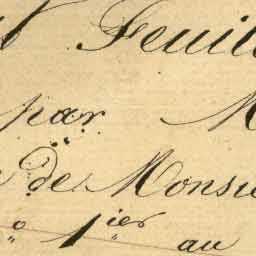 Feuil
par M
de Monsie
1ier au